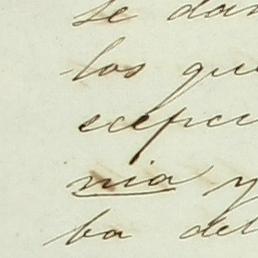 se dan
los que
scepci
nia y
ba del